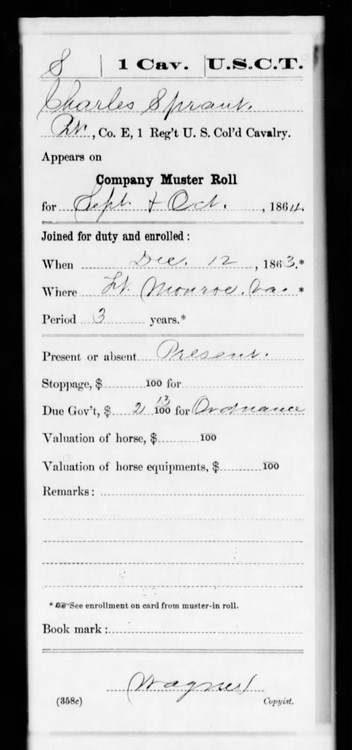 S | 1 Cav. | U.S.C.T.
Charles Spraut.
Pvt., Co. E, 1 Reg't U. S. Col'd Cavalry.
Appears on
Company Muster Roll
for Sept. & Oct., 1864.
Joined for duty and enrolled:
When Dec. 12, 1863.*
Where Ft. Monroe, Va. *
Period 3 years.*
Present or absent Present.
Stoppage, $ 100 for
Due Gov't, $ 2 13/100 for Ordnance
Valuation of horse, $ 100
Valuation of horse equipments, $ 100
Remarks:
* See enrollment on card from muster-in roll.
Book mark:
Wagner
(358c) Copyist.